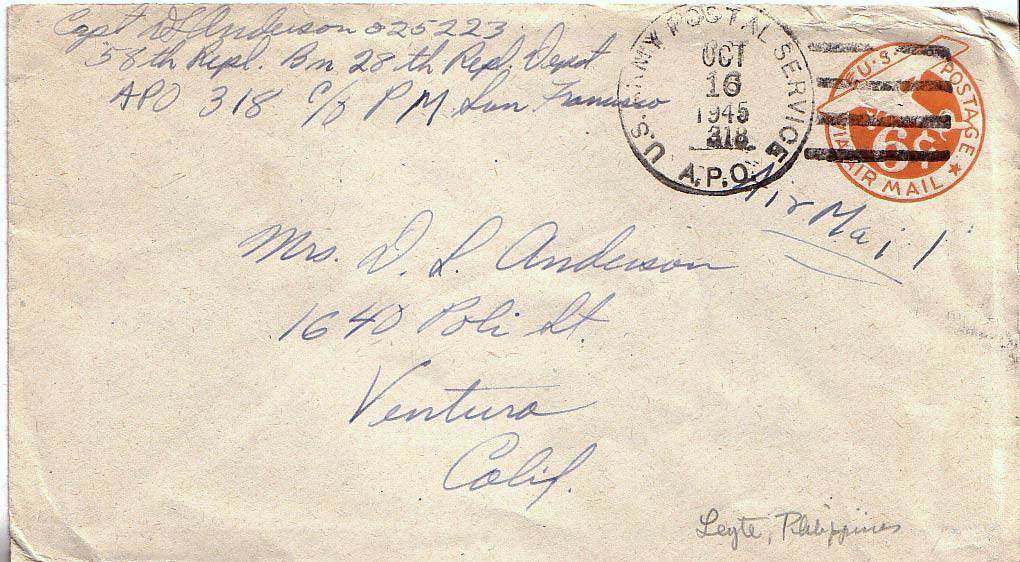 Capt D L Anderson 025223
38th Repl. Bn 28th Repl. Depot
APO 318 c/o P M San Francisco
U.S. ARMY POSTAL SERVICE
OCT
16
1945
318
A.P.O.
U.S. POSTAGE
6¢
VIA AIR MAIL
Air Mail
Mrs. D. L. Anderson
1640 Poli St.
Ventura
Calif.
Leyte, Philippines